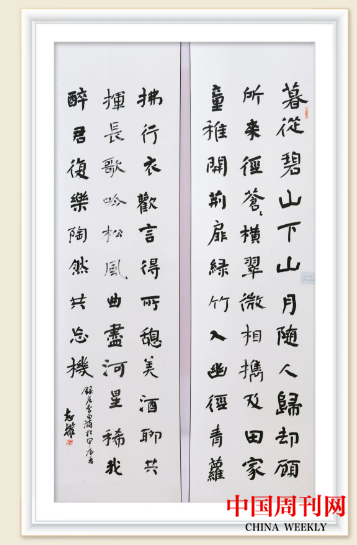 暮從碧山下山月隨人歸却顧
所來徑蒼〻橫翠微相携及田家
童稚開荊扉綠竹入幽徑青蘿
拂行衣歡言得所憩美酒聊共
揮長歌吟松風曲盡河星稀我
醉君復樂陶然共忘機
中国周刊网
CHINA WEEKLY